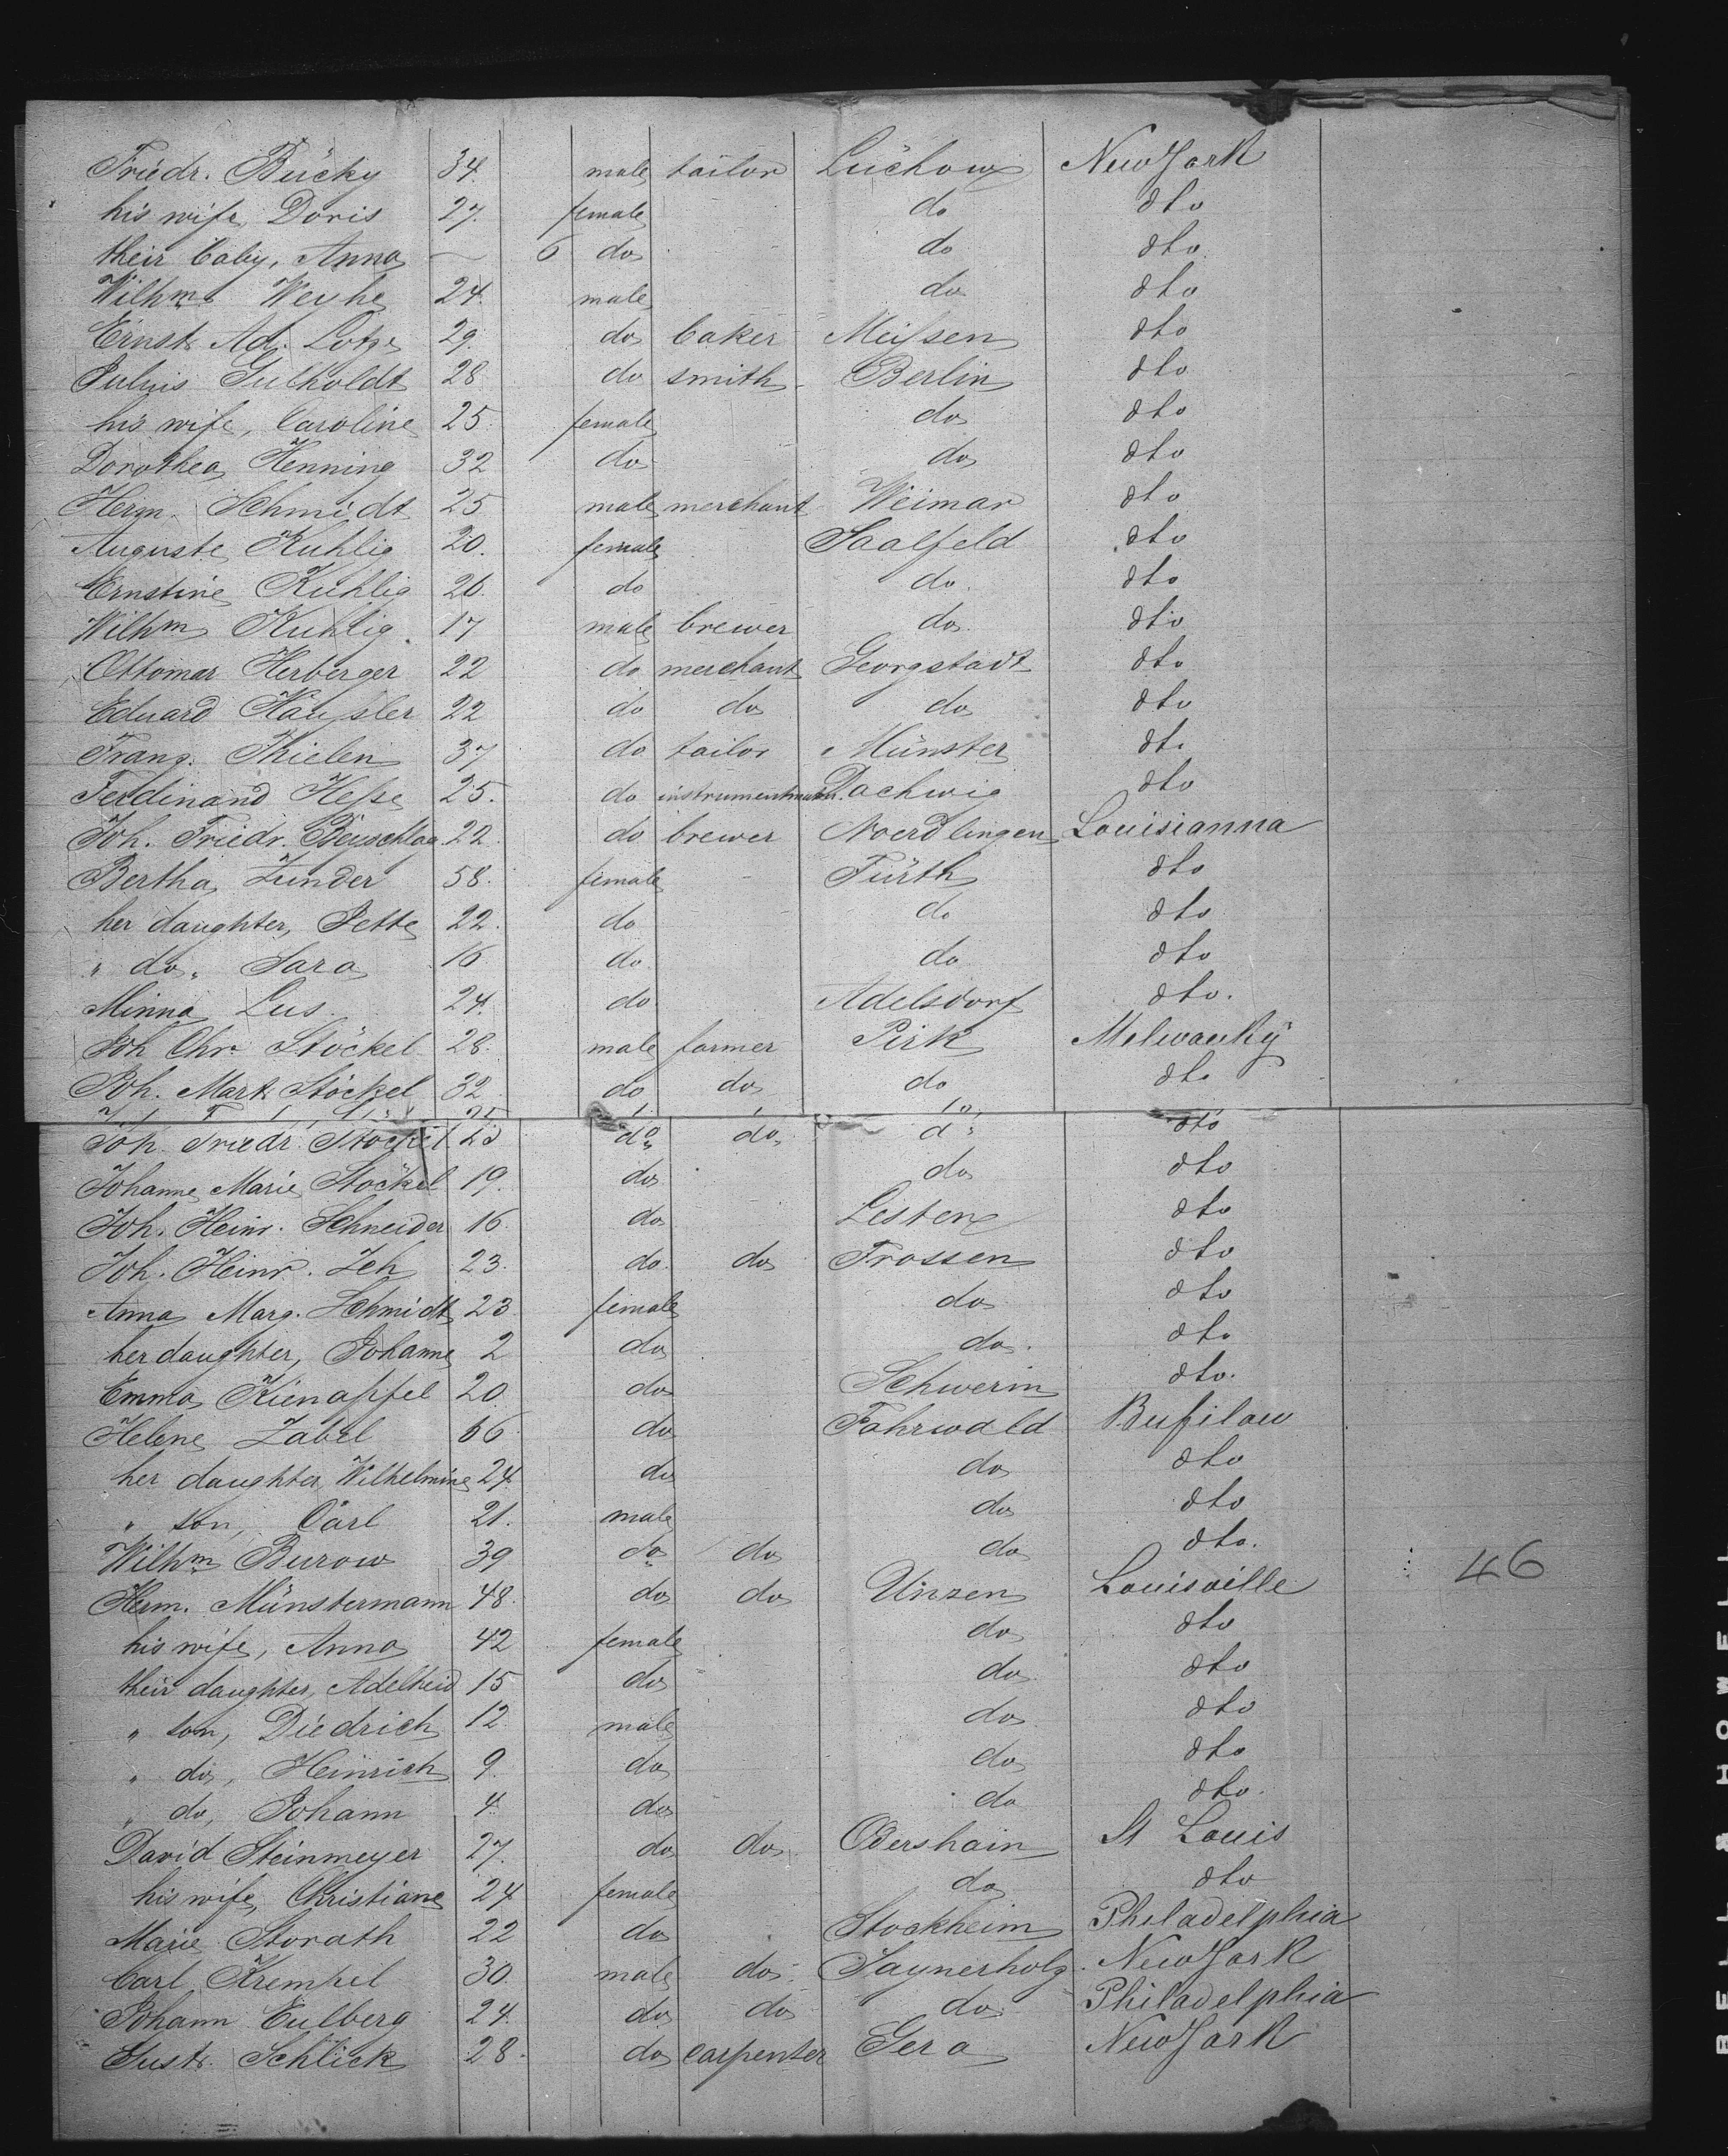 Friedr. Bücky 34. male tailor Lüchow New York
his wife, Doris 27. female do dto
their baby, Anna — 6 do do dto
Wilhm. Weyhe 24. male do dto
Ernst Ad. Lotze 29. do baker Meißen dto
Julius Gutholdt 28 do smith Berlin dto
his wife, Caroline 25. female do dto
Dorothea Henning 32 do do dto
Herm. Schmidt 25 male merchant Weimar dto
Auguste Kuhlig 20. female Saalfeld dto
Ernstine Kuhlig 20. do do. dto
Wilhm Kuhlig. 17 male brewer do. dto
Ottomar Herberger 22 do merchant Georgstadt dto
Eduard Häußler 22 do do do dto
Franz. Thielen 37 do tailor Münster dto
Ferdinand Heße 25. do Dachwig dto
Joh. Friedr. Beuschlag 22. do brewer Noerdlingen Louisianna
Bertha Zunder 58. female Fürth dto
her daughter, Jette 22. do do dto
" do, Sara 16 do do dto
Minna Lus. 24. do Adelsdorf dto.
Joh Chr. Stöckel 28. male farmer Pirk Melwauky
Joh. Mark Stöckel 32 do do do dto
Joh. Friedr. Stöckel 25 do do do dto
Johanne Marie Stöckel 19. do do dto
Joh. Heinr. Schneider 16. do Lesten dto
Joh. Heinr. Zeh 23. do. do Trossen dto
Anna Marg. Schmidt 23. female do dto
her daughter, Johanne 2 do do. dto
Emma Kienapfel 20. do Schwerin dto.
Helene Zabel 56 do Fahrwald Bufilow
her daughter Wilhelmine 24 do do dto
" son, Carl 21. male do dto
Wilhm Burow 39 do do do dto.
Herm. Münstermann 48. do do Uinzen Louisville 46
his wife, Anna 42 female do dto
their daughter, Adelheid 15 do do dto
" son, Diedrich 12 male do dto
" do, Heinrich 9. do do dto
" do, Johann 4. do do dto.
David Steinmeyer 27. do do Odershain St Louis
his wife, Christiane 24 female do dto
Marie Storath 22 do Stockheim Philadelphia
Carl Krempel 30. male do. Saynerholz. New York
Johann Eulberg 24. do do do Philadelphia
Gust. Schlick 28. do carpenter Gera New York
BELL & HOWELL